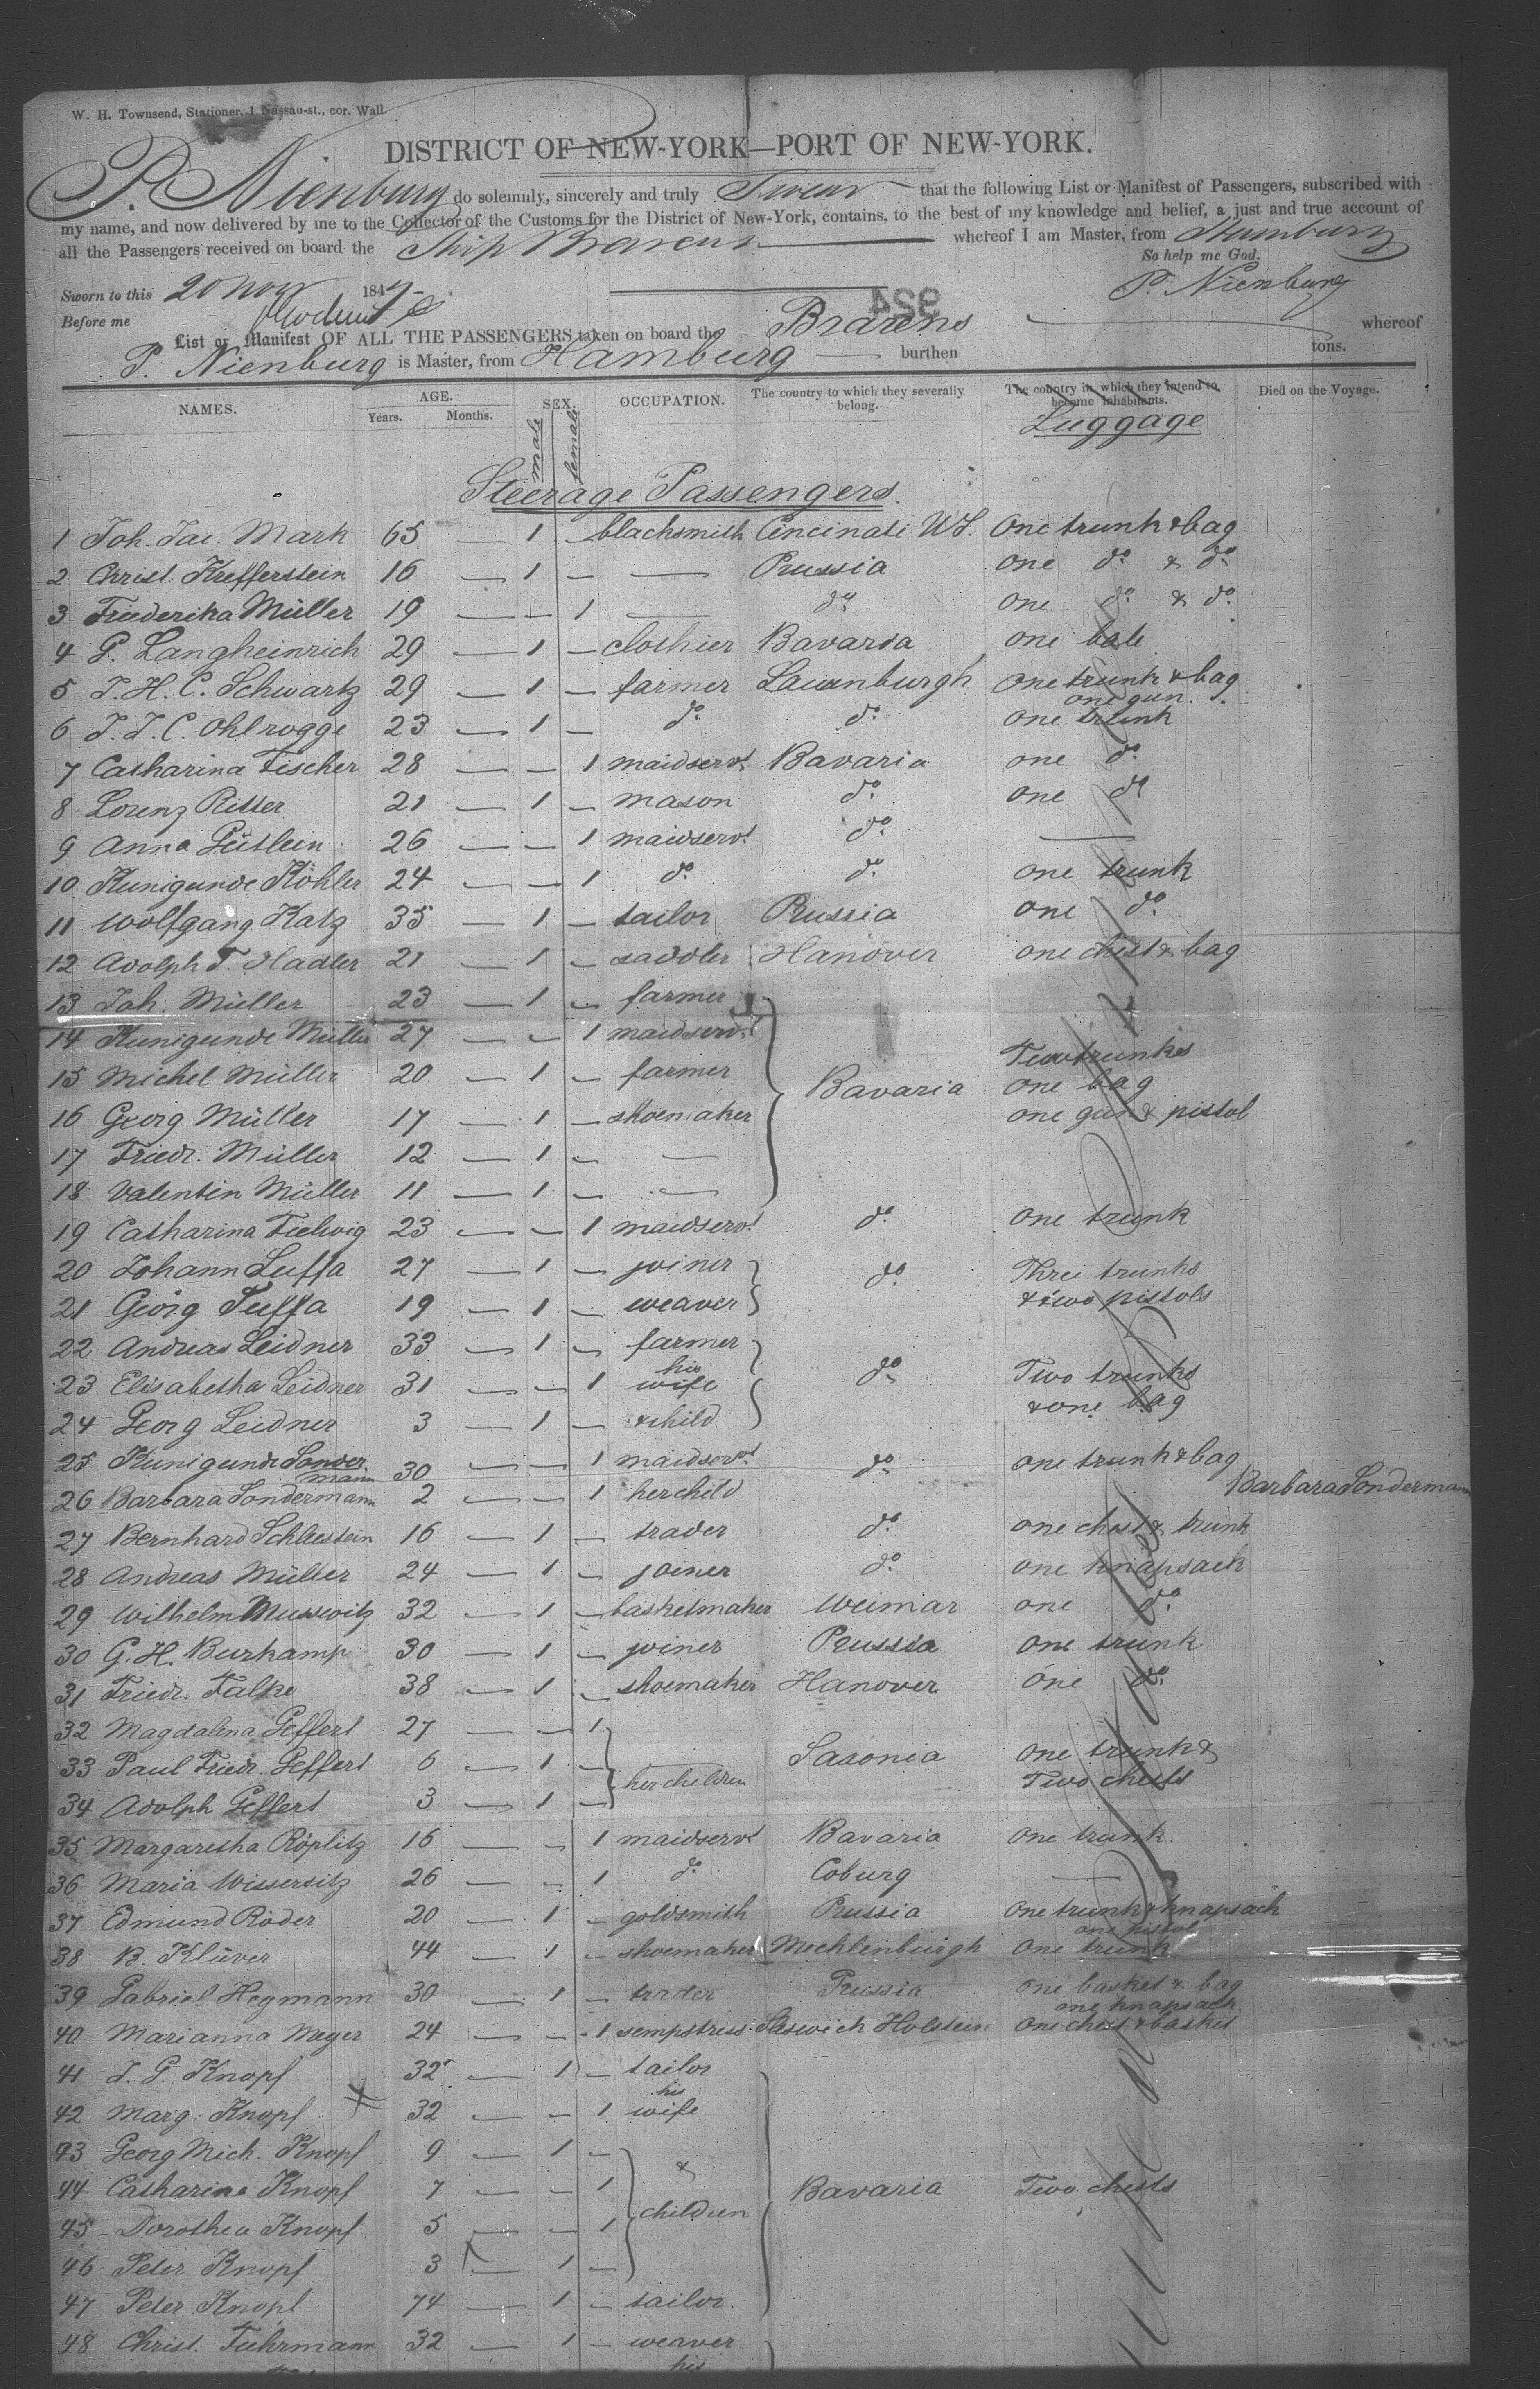 W. H. Townsend, Stationer, 1 Nassau-st., cor. Wall.
DISTRICT OF NEW-YORK—PORT OF NEW-YORK.
P. Nienburg do solemnly, sincerely and truly Swear that the following List or Manifest of Passengers, subscribed with
my name, and now delivered by me to the Collector of the Customs for the District of New-York, contains, to the best of my knowledge and belief, a just and true account of
all the Passengers received on board the Ship Brarens whereof I am Master, from Hamburg
So help me God.
Sworn to this 20 Nov 184 P. Nienburg
Before me
924
List or Manifest OF ALL THE PASSENGERS taken on board the Brarens whereof
P. Nienburg is Master, from Hamburg burthen tons.
NAMES. AGE. Years. Months. SEX. male female OCCUPATION. The country to which they severally belong. The country in which they intend to become inhabitants. Luggage Died on the Voyage.
Steerage Passengers.
1 Joh. Jac. Mark 65 — 1 — blacksmith Cincinati US. One trunk & bag
2 Christ. Krefferstein 16 — 1 — — Prussia one do & do
3 Friederika Müller 19 — — 1 — do one do & do
4 G. Langheinrich 29 — 1 — clothier Bavaria one bale
5 J. H. C. Schwartz 29 — 1 — farmer Lauenburgh One trunk & bag
one gun.
6 J. J. C. Ohlrogge 23 — 1 — do do one trunk
7 Catharina Fischer 28 — — 1 maidservt Bavaria one do
8 Lorenz Ritter 21 — 1 — mason do one do
9 Anna Gütlein 26 — — 1 maidservt do —
10 Kunigunde Köhler 24 — — 1 do do one trunk
11 Wolfgang Katz 35 — 1 — tailor Prussia one do
12 Adolph F. Hadler 21 — 1 — saddler Hanover one chest & bag
13 Joh. Müller 23 — 1 — farmer
14 Kunigunde Müller 27 — — 1 maidservt
Two trunks
15 Michel Müller 20 — 1 — farmer Bavaria one bag
16 Georg Müller 17 — 1 — shoemaker one gun & pistol
17 Friedr. Müller 12 — 1 — —
18 Valentin Müller 11 — 1 — —
19 Catharina Fielwig 23 — — 1 maidservt do one trunk
20 Johann Luffa 27 — 1 — joiner do Three trunks
21 Georg Tuffa 19 — 1 — weaver & two pistols
22 Andreas Leidner 33 — 1 — farmer
23 Elisabetha Leidner 31 — — 1 his wife do Two trunks
24 Georg Leidner 3 — 1 — & child & one bag
25 Kunigunde Sondermann 30 — — 1 maidservt do one trunk & bag
26 Barbara Sondermann 2 — — 1 her child Barbara Sondermann
27 Bernhard Schleestein 16 — 1 — trader do one chest & trunk
28 Andreas Müller 24 — 1 — joiner do one knapsack
29 Wilhelm Musswitz 32 — 1 — basketmaker Weimar one do
30 G. H. Burkamp 30 — 1 — joiner Prussia one trunk
31 Friedr. Falke 38 — 1 — shoemaker Hanover one do
32 Magdalena Geffert 27 — — 1
33 Paul Friedr. Geffert 6 — 1 — Saxonia one trunk &
her children Two chests
34 Adolph Geffert 3 — 1 —
35 Margaretha Röplitz 16 — — 1 maidservt Bavaria one trunk
36 Maria Wissersitz 26 — — 1 do Coburg —
37 Edmund Röder 20 — 1 — goldsmith Prussia one trunk & knapsack
one pistol
38 B. Klüver 44 — 1 — shoemaker Mecklenburgh one trunk
39 Gabriel Heymann 30 — 1 — trader Prussia one basket & bag
one knapsack
40 Marianna Meyer 24 — — 1 sempstress Sleswich Holstein one chest & basket
41 J. G. Knopf 32 — 1 — tailor
42 Marg. Knopf 32 — — 1 his wife
43 Georg Mich. Knopf 9 — 1 —
44 Catharina Knopf 7 — — 1 & children Bavaria Two chests
45 Dorothea Knopf 5 — — 1
46 Peter Knopf 3 — 1 —
47 Peter Knopf 74 — 1 — tailor
48 Christ. Fuhrmann 32 — 1 — weaver
his